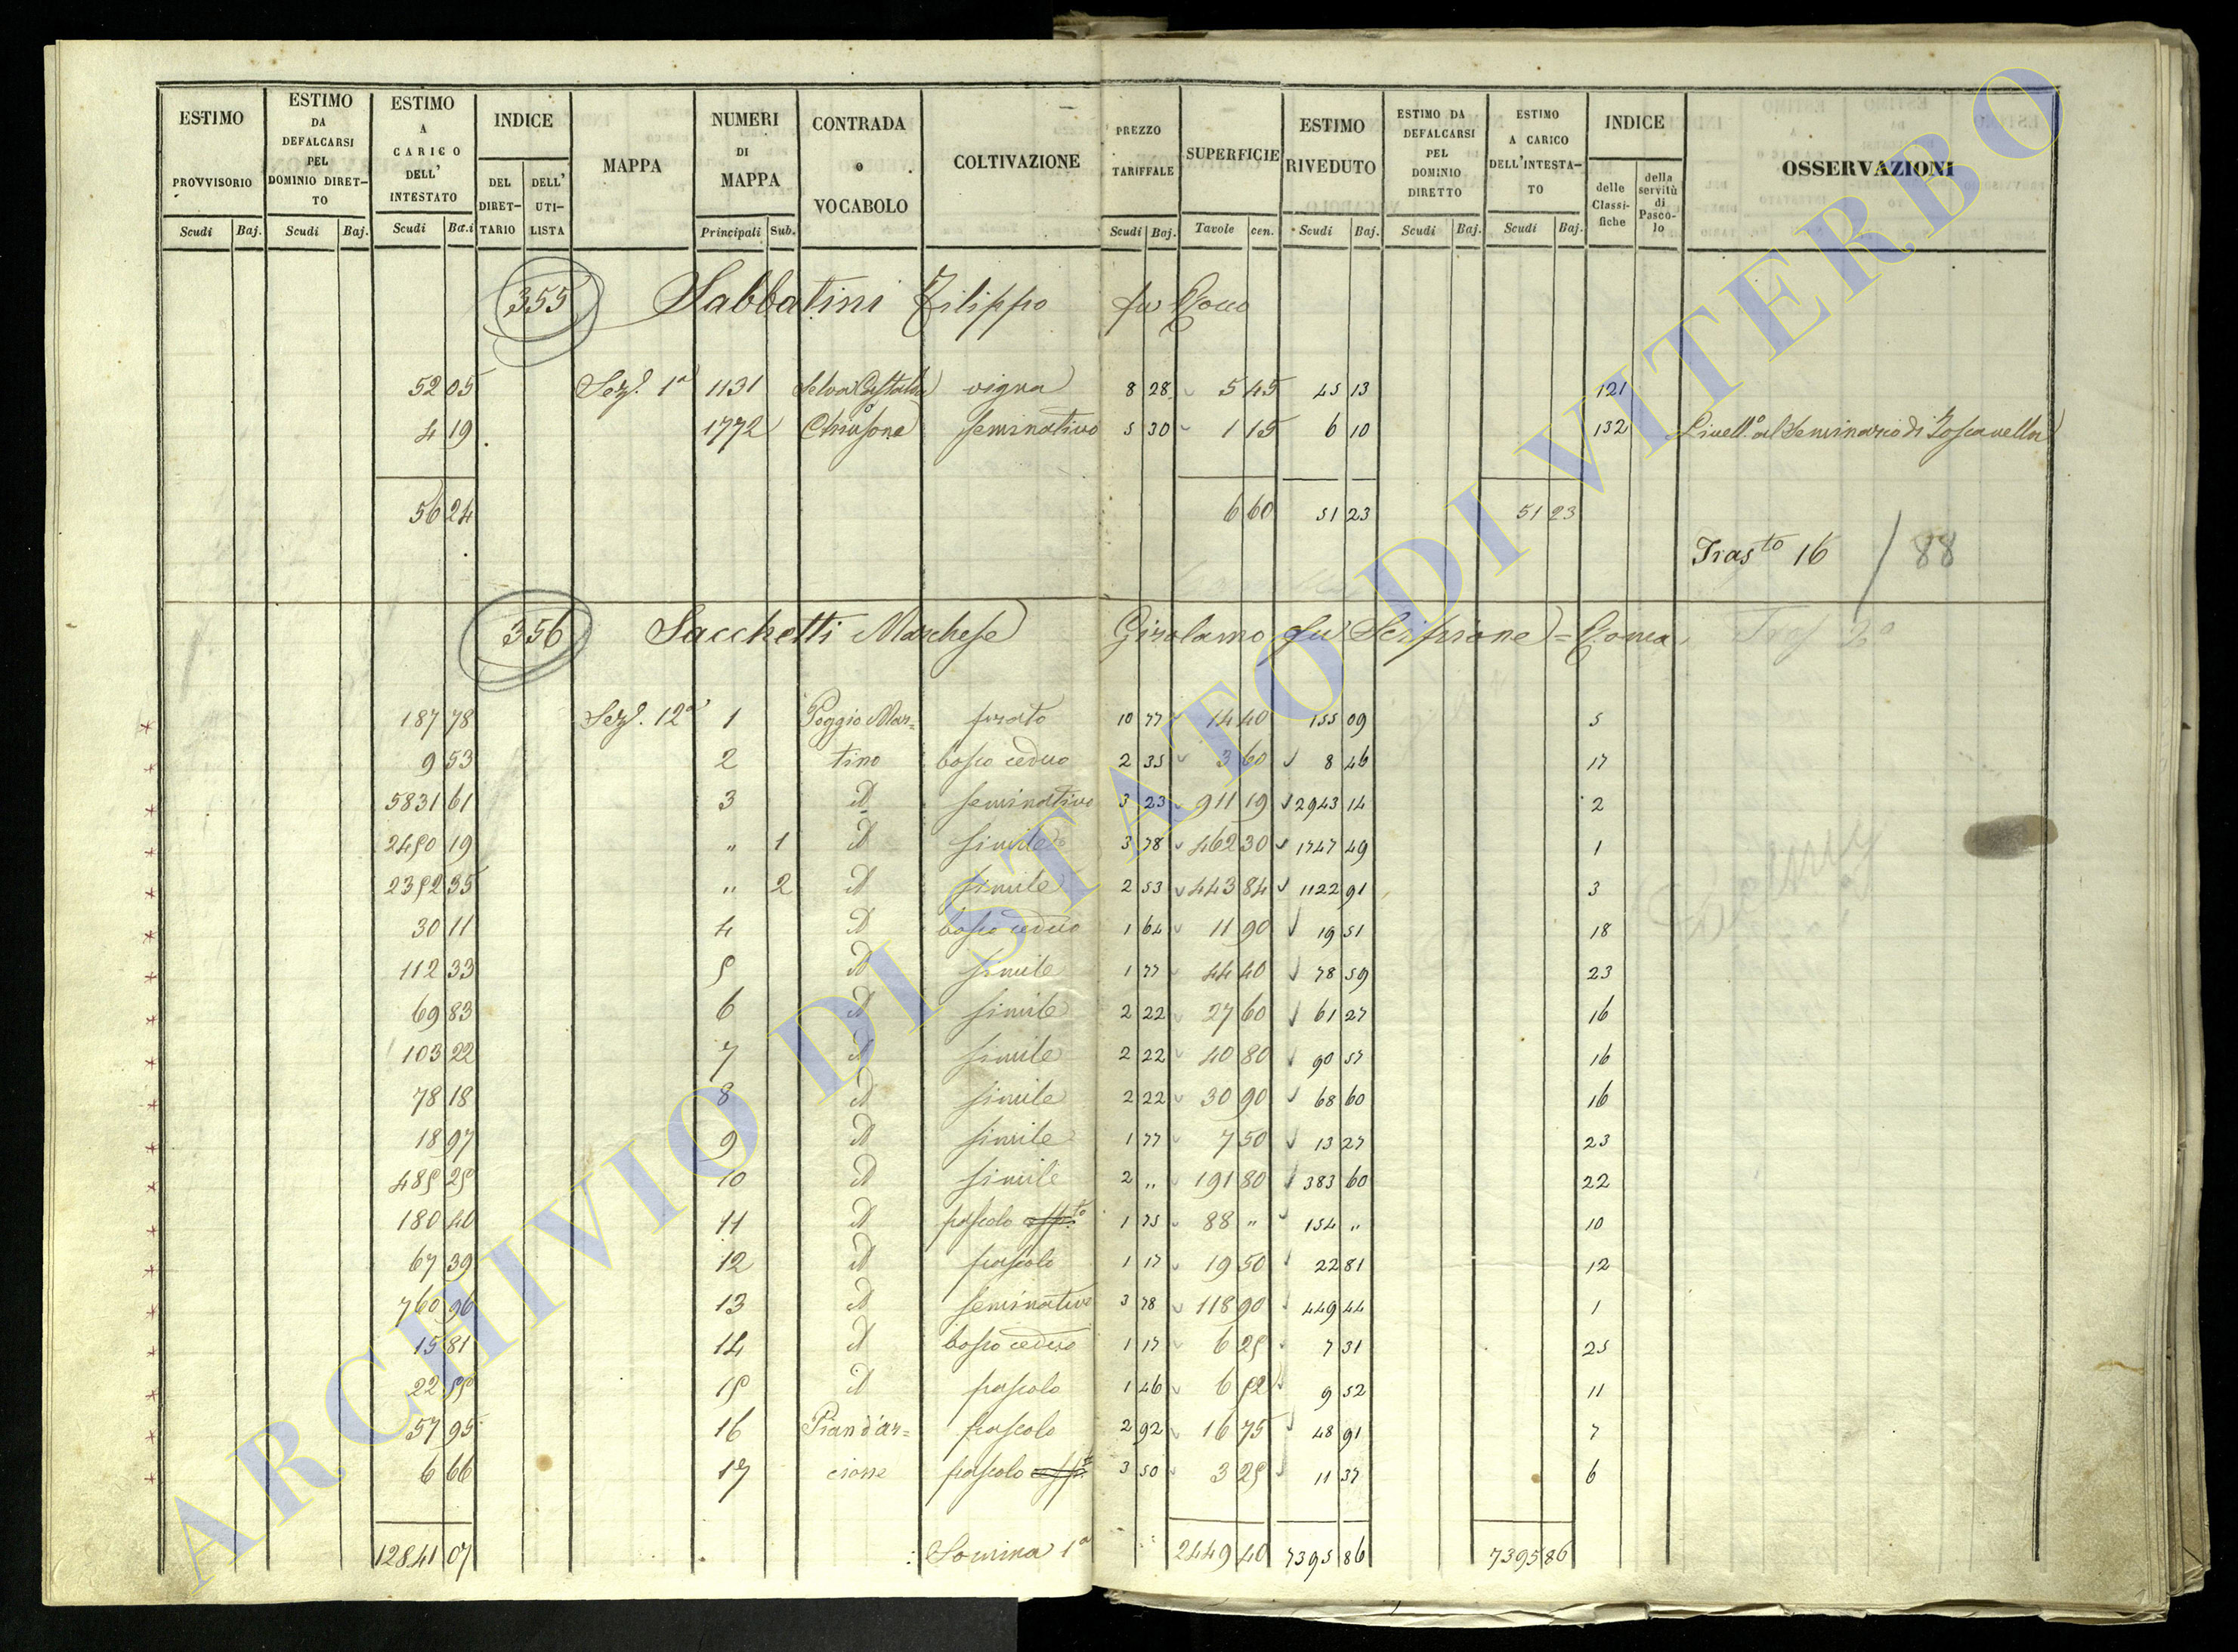 ESTIMO PROVVISORIO Scudi Baj. | ESTIMO DA DEFALCARSI PEL DOMINIO DIRETTO Scudi Baj. | ESTIMO A CARICO DELL' INTESTATO Scudi Ba.i | INDICE DEL DIRETTARIO DELL' UTILISTA | MAPPA | NUMERI DI MAPPA Principali Sub. | CONTRADA o VOCABOLO | COLTIVAZIONE | PREZZO TARIFFALE Scudi Baj. | SUPERFICIE Tavole cen. | ESTIMO RIVEDUTO Scudi Baj. | ESTIMO DA DEFALCARSI PEL DOMINIO DIRETTO Scudi Baj. | ESTIMO A CARICO DELL'INTESTATO Scudi Baj. | INDICE delle Classifiche della servitù di Pascolo | OSSERVAZIONI
355 Sabbatini Filippo fu Rocco
52 05 Sez. 1a 1131 Selva vigna 8 28 5 45 45 13 121
4 19 1772 Chiusone seminativo 5 30 1 15 6 10 132 Livell.o al Seminario di Toscanella
56 24 6 60 51 23 51 23
Tras.to 16 / 88
356 Sacchetti Marchese Girolamo fu Scipione = Roma Tras 2o
187 78 Sez. 12a 1 Poggio Mar= prato 10 77 14 40 155 09 5
9 53 2 tino bosco ceduo 2 35 3 60 8 46 17
5831 61 3 d seminativo 3 23 911 19 2943 14 2
2450 19 " 1 d simile 3 78 462 30 1747 49 1
2352 35 " 2 d simile 2 53 443 84 1122 91 3
30 11 4 d bosco ceduo 1 64 11 90 19 51 18
112 33 5 d simile 1 77 44 40 78 59 23
69 83 6 d simile 2 22 27 60 61 27 16
103 22 7 d simile 2 22 40 80 90 57 16
78 18 8 d simile 2 22 30 90 68 60 16
18 97 9 d simile 1 77 7 50 13 27 23
485 25 10 d simile 2 " 191 80 383 60 22
180 40 11 d pascolo 1 75 88 " 154 " 10
67 39 12 d pascolo 1 17 19 50 22 81 12
760 96 13 d seminativo 3 78 118 90 449 44 1
15 81 14 d bosco ceduo 1 17 6 25 7 31 25
22 55 15 d pascolo 1 46 6 52 9 52 11
57 95 16 Pian d'ar= pascolo 2 92 16 75 48 91 7
6 66 17 cione pascolo 3 50 3 25 11 37 6
12841 07 Somma 1a 2449 40 7395 86 7395 86
ARCHIVIO DI STATO DI VITERBO